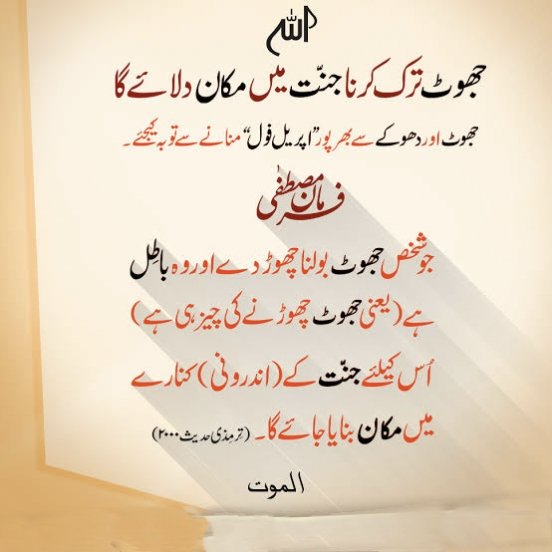 الله
جھوٹ ترک کرنا جنّت میں مکان دلائے گا
جھوٹ اور دھوکے سے بھرپور ”اپریل فول“ منانے سے توبہ کیجئے۔
فرمانِ مصطفٰی
جو شخص جھوٹ بولنا چھوڑ دے اور وہ باطِل
ہے (یعنی جھوٹ چھوڑنے کی چیز ہی ہے)
اُس کیلئے جنّت کے (اندرونی) کنارے
میں مکان بنایا جائے گا۔ (ترمذی حدیث ۲۰۰۰)
الموت